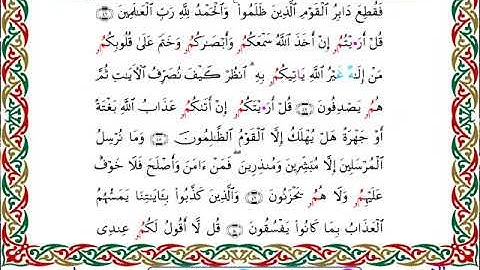 فَقُطِعَ دَابِرُ الْقَوْمِ الَّذِينَ ظَلَمُواْ وَالْحَمْدُ لِلَّهِ رَبِّ الْعَٰلَمِينَ
قُلْ أَرَٰيْتُمُۥ إِنْ أَخَذَ اللَّهُ سَمْعَكُمُۥ وَأَبْصَٰرَكُمُۥ وَخَتَمَ عَلَىٰ قُلُوبِكُمُۥ
مَنْ إِلَٰهٌ غَيْرُ اللَّهِ يَاتِيكُمُۥ بِهِۦ انظُرْ كَيْفَ نُصَرِّفُ الْأٓيَٰتِ ثُمَّ
هُمُۥ يَصْدِفُونَ قُلْ أَرَٰيْتَكُمُۥ إِنْ أَتَىٰكُمُۥ عَذَابُ اللَّهِ بَغْتَةً
أَوْ جَهْرَةً هَلْ يُهْلَكُ إِلَّا الْقَوْمُ الظَّٰلِمُونَ وَمَا نُرْسِلُ
الْمُرْسَلِينَ إِلَّا مُبَشِّرِينَ وَمُنذِرِينَ فَمَنْ ءَامَنَ وَأَصْلَحَ فَلَا خَوْفٌ
عَلَيْهِمُۥ وَلَا هُمُۥ يَحْزَنُونَ وَالَّذِينَ كَذَّبُواْ بِـَٔايَٰتِنَا يَمَسُّهُمُ
الْعَذَابُ بِمَا كَانُواْ يَفْسُقُونَ قُل لَّا أَقُولُ لَكُمُۥ عِندِى